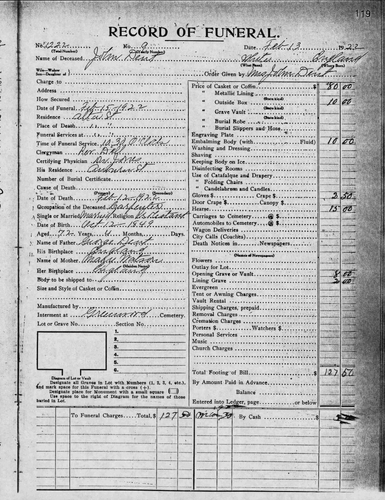 119
RECORD OF FUNERAL.
No. 1222 No. 9 Date, Feb 13 1922
(Total Number) (Yearly Number)
Name of Deceased, John Dent White England
(What Race) (Where Born)
Wife-Widow
Son-Daughter of Order Given by Mrs John Dent
Charge to
Address
How Secured
Date of Funeral Feb-15-1922
Residence
Place of Death
Funeral Services at
Time of Funeral Service 10.30 O'Clock
Clergyman Rev
Certifying Physician
His Residence
Number of Burial Certificate
Cause of Death
Date of Death Feb-12-1922
Occupation of the Deceased Carpenter
Single or Married Married Religion Protestant
Date of Birth Oct-12-1849
Aged 72 Years, 4 Months, Days.
Name of Father George Dent
His Birthplace England
Name of Mother
Her Birthplace England
Body to be shipped to
Size and Style of Casket or Coffin
Manufactured by
Interment at Greenwood Cemetery.
Lot or Grave No. Section No.
1.
2.
3.
4.
5.
6.
Diagram of Lot or Vault
Designate all Graves in Lot with Numbers (1, 2, 3, 4, etc.),
and mark space for this Funeral with a cross (+)
Designate place for Monument with a small square
Use space to right of Diagram for the names of those
buried in Lot.
Price of Casket or Coffin $ 80 00
Metallic Lining
(State kind)
Outside Box 10 00
(State kind)
Grave Vault
(State kind)
Burial Robe
(State kind)
Burial Slippers and Hose
Engraving Plate
Embalming Body (with Fluid) 10 00
Washing and Dressing
Shaving
Keeping Body on Ice
Disinfecting Rooms
Use of Catafalque and Drapery
" Folding Chairs
" Candelabrum and Candles
Gloves $ Crape $ 2 50
Door Crape $ Canopy $
Hearse 15 00
Carriages to Cemetery @ $
Automobiles to Cemetery @ $
Wagon Deliveries
City Calls (Coaches)
Death Notices in Newspapers
(Names of Newspapers)
Flowers
Outlay for Lot
Opening Grave or Vault 8 00
Lining Grave 2 00
Evergreen
Tent or Awning Charges
Vault Rental
Shipping Charges, prepaid
Removal Charges
Cremation Charges
Porters $ Watchers $
Personal Services
Music
Church Charges
Total Footing of Bill $ 127 50
By Amount Paid in Advance
Balance
Entered into Ledger, page or below
To Funeral Charges Total, $ 127 50 By Cash $